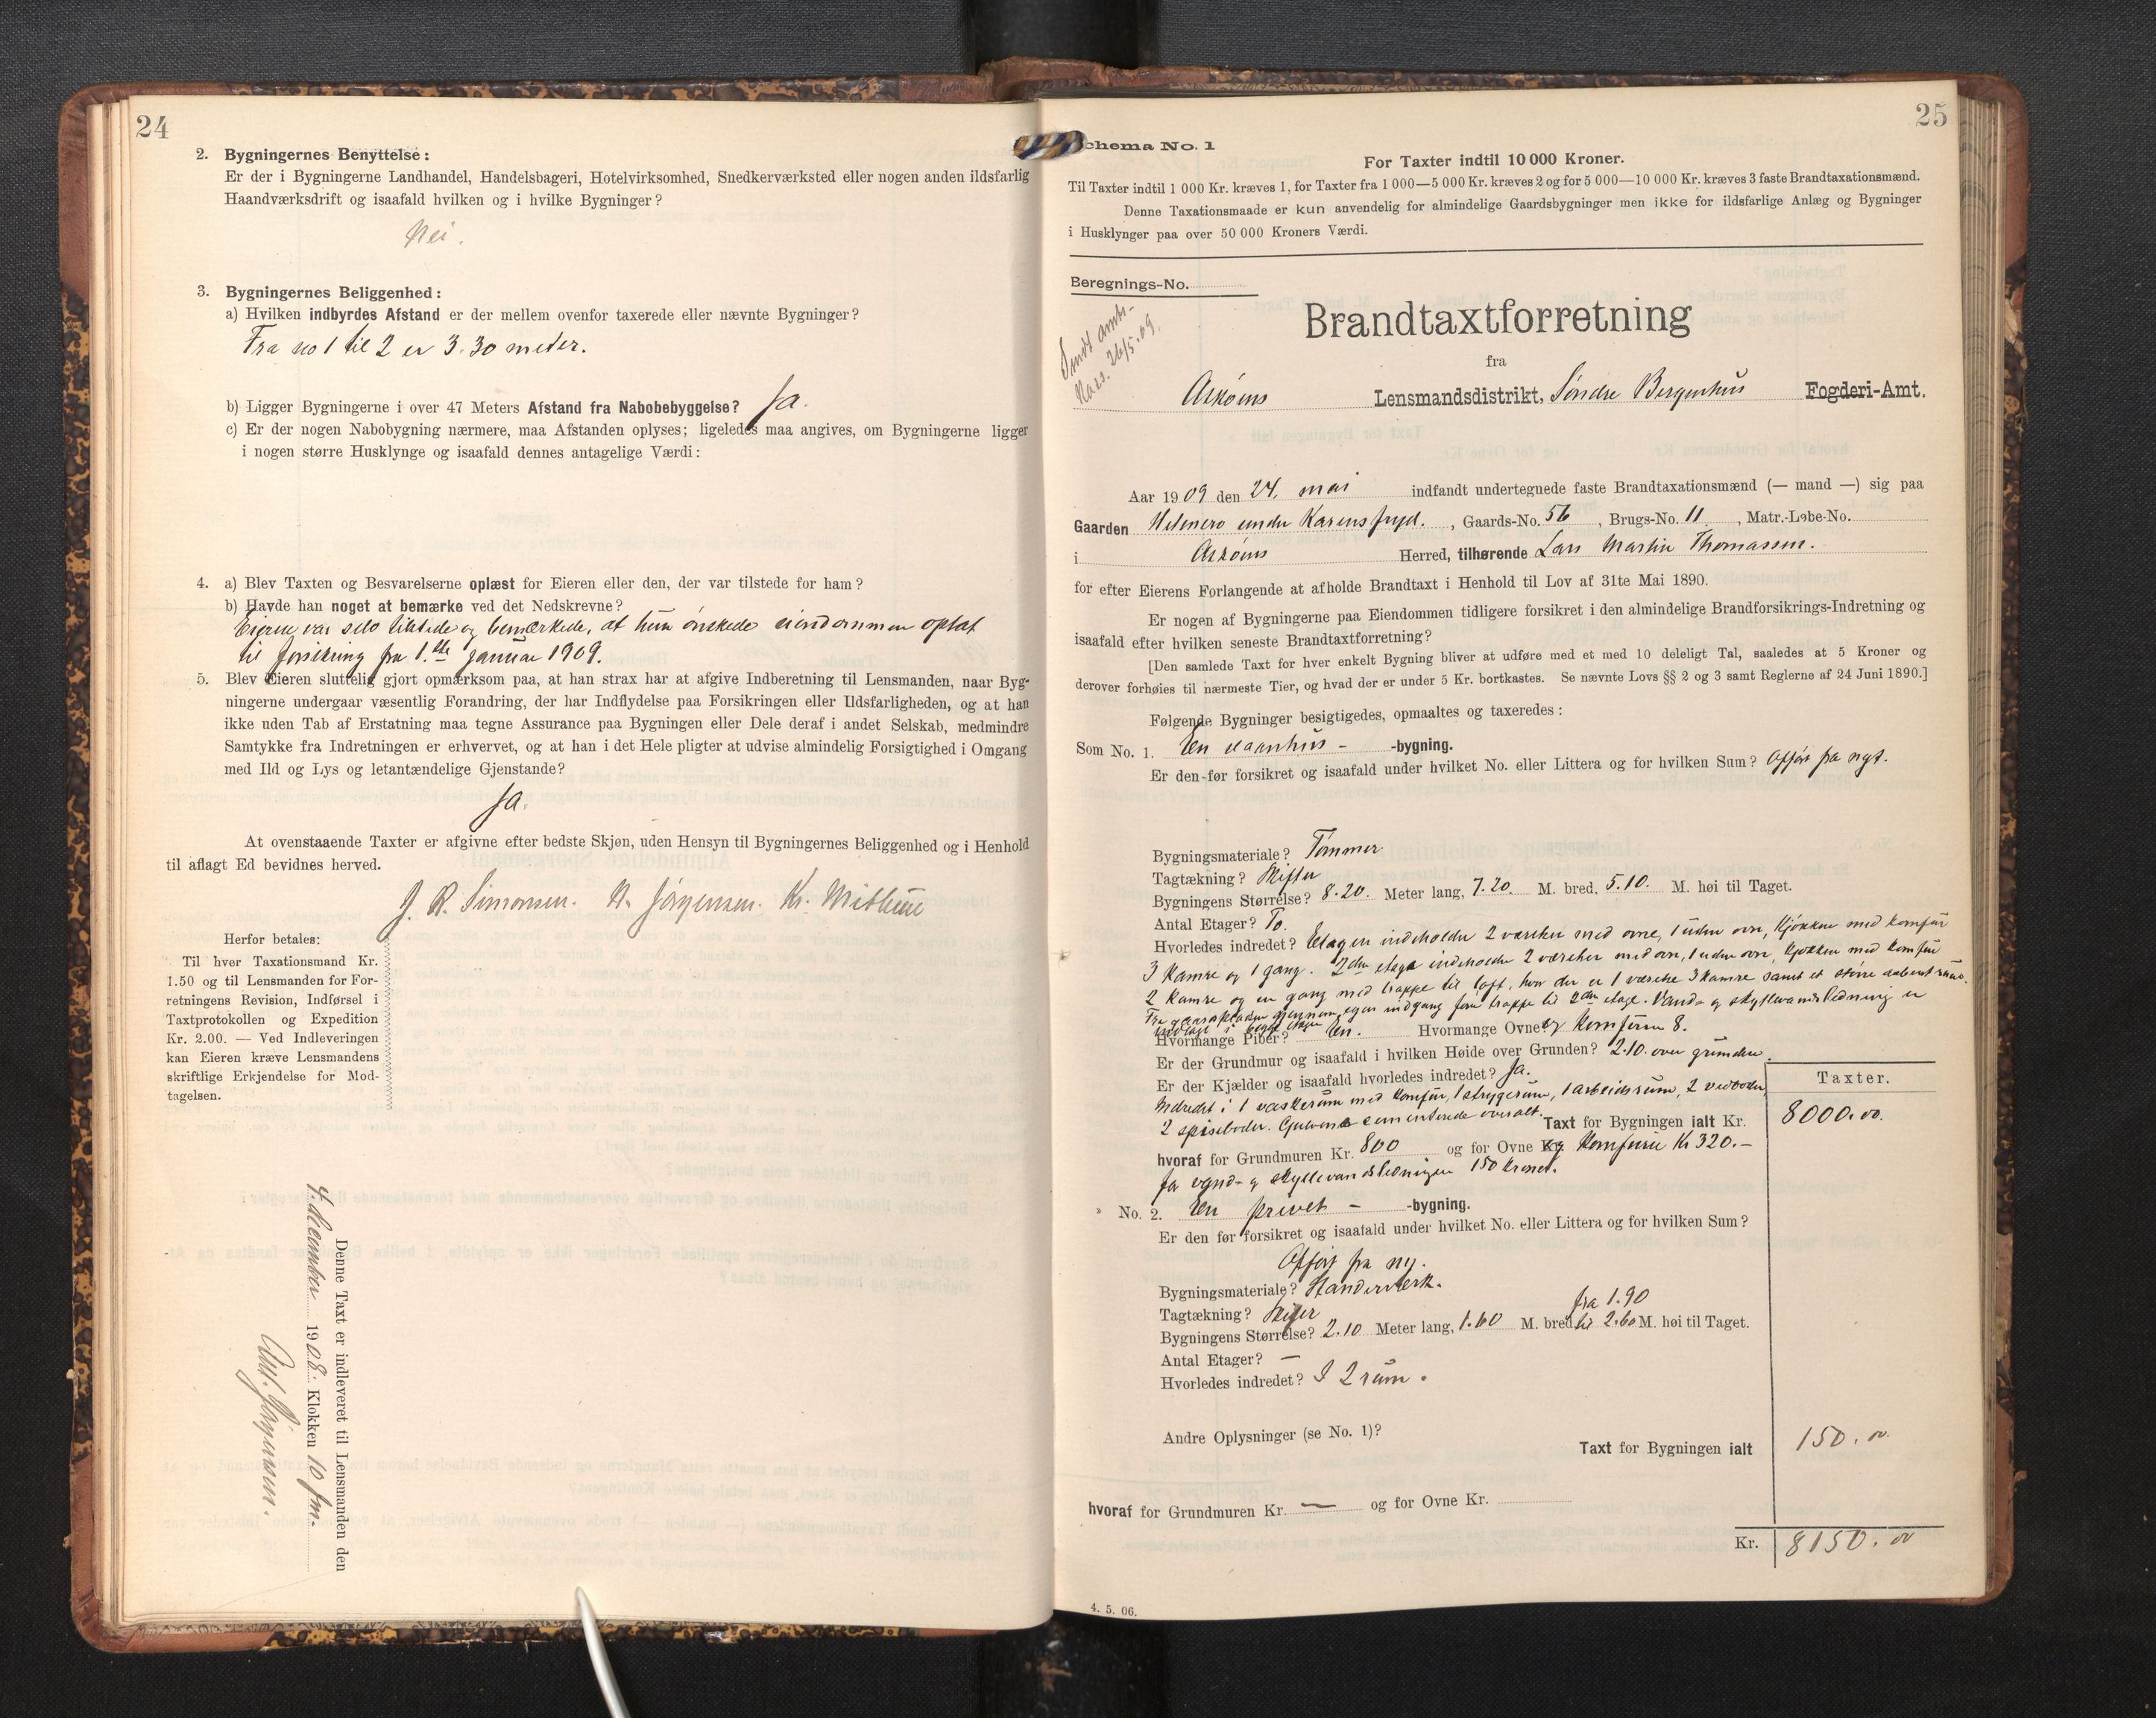 24
2. Bygningernes Benyttelse:
Er der i Bygningerne Landhandel, Handelsbageri, Hotelvirksomhed, Snedkerværksted eller nogen anden ildsfarlig
Haandværksdrift og isaafald hvilken og i hvilke Bygninger?
Nei.
3. Bygningernes Beliggenhed:
a) Hvilken indbyrdes Afstand er der mellem ovenfor taxerede eller nævnte Bygninger?
Fra no 1 til 2 er 3.30 meter.
b) Ligger Bygningerne i over 47 Meters Afstand fra Nabobebyggelse? Ja.
c) Er der nogen Nabobygning nærmere, maa Afstanden oplyses; ligeledes maa angives, om Bygningerne ligger
i nogen større Husklynge og isaafald dennes antagelige Værdi:
4. a) Blev Taxten og Besvarelserne oplæst for Eieren eller den, der var tilstede for ham?
b) Havde han noget at bemærke ved det Nedskrevne?
Eieren var selv tilstede og bemærkede, at hun ønskede eiendommen optat
til forsikring fra 1.ste januar 1909.
5. Blev Eieren sluttelig gjort opmærksom paa, at han strax har at afgive Indberetning til Lensmanden, naar Byg-
ningerne undergaar væsentlig Forandring, der har Indflydelse paa Forsikringen eller Ildsfarligheden, og at han
ikke uden Tab af Erstatning maa tegne Assurance paa Bygningen eller Dele deraf i andet Selskab, medmindre
Samtykke fra Indretningen er erhvervet, og at han i det Hele pligter at udvise almindelig Forsigtighed i Omgang
med Ild og Lys og letantændelige Gjenstande?
Ja.
At ovenstaaende Taxter er afgivne efter bedste Skjøn, uden Hensyn til Bygningernes Beliggenhed og i Henhold
til aflagt Ed bevidnes herved.
J. R. Simonsen. N. Jörgensen. Kr.
Herfor betales:
Til hver Taxationsmand Kr.
1.50 og til Lensmanden for For-
retningens Revision, Indførsel i
Taxtprotokollen og Expedition
Kr. 2.00. — Ved Indleveringen
kan Eieren kræve Lensmandens
skriftlige Erkjendelse for Mod-
tagelsen.
Denne Taxt er indleveret til Lensmanden den
4. december 1908. Klokken 10 fm.
Jörgensen.
25
chema No. 1
For Taxter indtil 10 000 Kroner.
Til Taxter indtil 1 000 Kr. kræves 1, for Taxter fra 1 000—5 000 Kr. kræves 2 og for 5 000—10 000 Kr. kræves 3 faste Brandtaxationsmænd.
Denne Taxationsmaade er kun anvendelig for almindelige Gaardsbygninger men ikke for ildsfarlige Anlæg og Bygninger
i Husklynger paa over 50 000 Kroners Værdi.
Beregnings-No.
Sendt amts-
26/5.09.
Brandtaxtforretning
fra
Askøens Lensmandsdistrikt, Søndre Bergenhus Fogderi-Amt.
Aar 1909 den 24. mai indfandt undertegnede faste Brandtaxationsmænd (— mand —) sig paa
Gaarden under Karensfryd., Gaards-No. 56, Brugs-No. 11, Matr.-Løbe-No.
i Askøens Herred, tilhørende Lars Martin Thomassen.
for efter Eierens Forlangende at afholde Brandtaxt i Henhold til Lov af 31te Mai 1890.
Er nogen af Bygningerne paa Eiendommen tidligere forsikret i den almindelige Brandforsikrings-Indretning og
isaafald efter hvilken seneste Brandtaxtforretning?
[Den samlede Taxt for hver enkelt Bygning bliver at udføre med et med 10 deleligt Tal, saaledes at 5 Kroner og
derover forhøies til nærmeste Tier, og hvad der er under 5 Kr. bortkastes. Se nævnte Lovs §§ 2 og 3 samt Reglerne af 24 Juni 1890.]
Følgende Bygninger besigtigedes, opmaaltes og taxeredes:
Som No. 1. En vaanhus - -bygning.
Er den før forsikret og isaafald under hvilket No. eller Littera og for hvilken Sum? Opført fra nyt.
Bygningsmateriale? Tømmer
Tagtækning? Skifer
Bygningens Størrelse? 8.20. Meter lang, 7.20. M. bred, 5.10. M. høi til Taget.
Antal Etager? To.
Hvorledes indredet? Etagen indeholder 2 værelser med ovne, 1 uden ovn, Kjøkken med komfur
3 kamre og 1 gang. 2den etage indeholder 2 værelser med ovn, 1 uden ovn, kjøkken med komfur
2 kamre og en gang med trappe til loft, hvor der er 1 værelse 3 kamre samt et større aabent rum.
Fra gaardspladsen gjennem egen indgang fører trappe til 2den etage. Vand- og skyllevandsledning er
indlagt i begge etager
Hvormange Piber? En. Hvormange Ovne? og Komfurer 8.
Er der Grundmur og isaafald i hvilken Høide over Grunden? 2.10. over grunden.
Er der Kjælder og isaafald hvorledes indredet? Ja.
Indredet i 1 vaskerum med komfur, 1 strygerum, 1 arbeidsrum, 2 vedboder,
2 spiseboder. Gulvene cementerede overalt.
Taxter.
Taxt for Bygningen ialt Kr. 8000.00.
hvoraf for Grundmuren Kr. 800 og for Ovne Kr. og Komfurer Kr 320.-
for vand- og skyllevandsledningen 150 kroner.
No. 2. En privet - -bygning.
Er den før forsikret og isaafald under hvilket No. eller Littera og for hvilken Sum?
Opført fra ny.
Bygningsmateriale? Standerverk.
Tagtækning? Skifer
Bygningens Størrelse? 2.10 Meter lang, 1.60 M. bred, fra 1.90 til 2.60 M. høi til Taget.
Antal Etager? —
Hvorledes indredet? I 2 rum.
Andre Oplysninger (se No. 1)?
Taxt for Bygningen ialt 150.00
hvoraf for Grundmuren Kr. — og for Ovne Kr.
Kr. 8150.00
4. 5. 06.